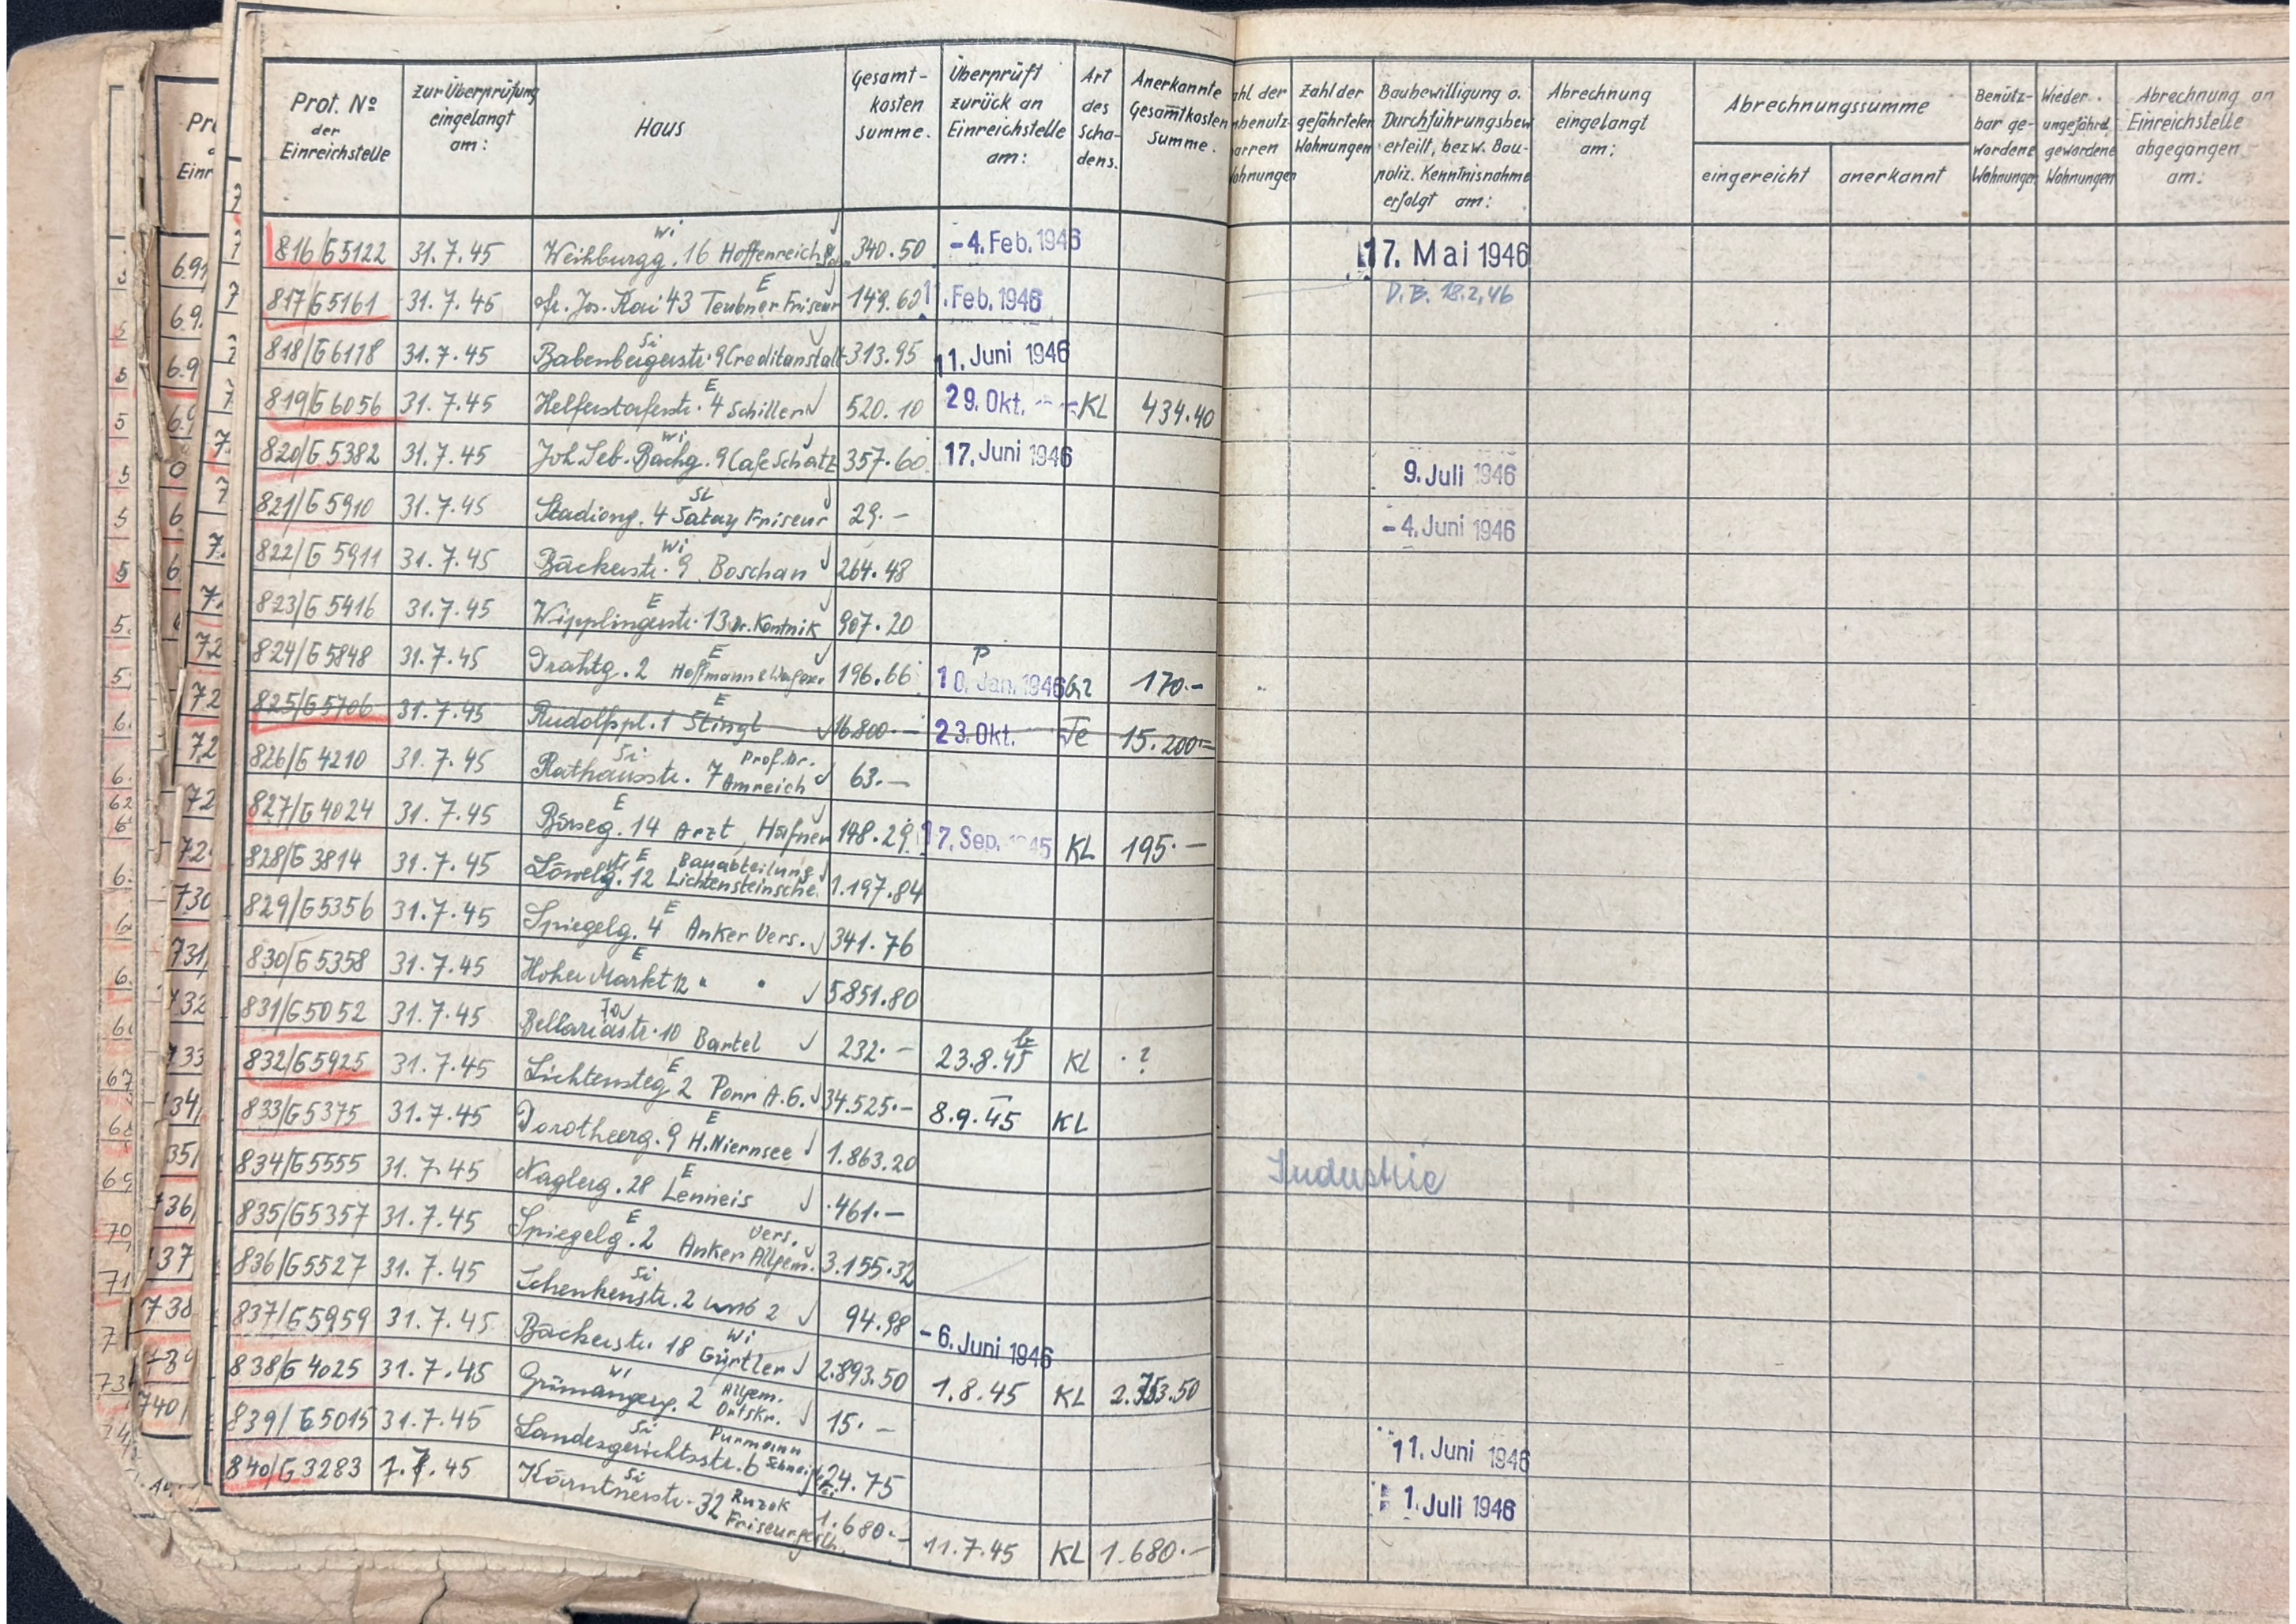 Prot. Nº der Einreichstelle | zur Überprüfung eingelangt am: | Haus | Gesamt-kosten summe. | Überprüft zurück an Einreichstelle am: | Art des Scha-dens. | Anerkannte Gesamtkosten Summe. | Zahl der gefährteten Wohnungen | Baubewilligung o. Durchführungsbew erteilt, bezw. Bau-poliz. Kenntnisnahme erfolgt am: | Abrechnung eingelangt am: | Abrechnungssumme eingereicht | anerkannt | Benütz-bar ge-wordene Wohnungen | Wieder ungefährd. gewordene Wohnungen | Abrechnung an Einreichstelle abgegangen am:
816/G5122 31.7.45 Weihburgg. 16 Hoffenreich Wi 340.50 -4. Feb. 1946 17. Mai 1946
817/G5161 31.7.45 Fr. Jos. Kai 43 Teubner Friseur E 149.60 11. Feb. 1946 D.B. 18.2.46
818/G6118 31.7.45 Babenbergerstr. 9 Creditanstalt Si 313.95 11. Juni 1946
819/G6056 31.7.45 Helferstorferstr. 4 Schiller E 520.10 29. Okt. KL 434.40
820/G5382 31.7.45 Joh. Seb. Bachg. 9 Cafe Schatz Wi 357.60 17. Juni 1946 9. Juli 1946
821/G5910 31.7.45 Stadiong. 4 Satay Friseur Si 29.- -4. Juni 1946
822/G5911 31.7.45 Bäckerstr. 9 Boschan Wi 264.48
823/G5416 31.7.45 Wipplingerstr. 13 Dr. Kontnik E 907.20
824/G5848 31.7.45 Drahtg. 2 Hoffmann & Wagner E 196.66 P 10. Jan. 1946 170.-
825/G5706 31.7.45 Rudolfspl. 1 Stingl E 16.800.- 23. Okt. Te 15.200.-
826/G4210 31.7.45 Rathausstr. 7 Prof. Dr. Amreich Si 63.-
827/G4024 31.7.45 Börseg. 14 Arzt, Hafner E 148.29 17. Sep. 1945 KL 195.-
828/G3814 31.7.45 Löwelg. 12 Bauabteilung Lichtensteinsche. E 1.197.84
829/G5356 31.7.45 Spiegelg. 4 Anker Vers. E 341.76
830/G5358 31.7.45 Hoher Markt 12 " " E 5851.80
831/G5052 31.7.45 Bellariastr. 10 Bartel 232.- 23.8.45 KL ?
832/G5925 31.7.45 Lichtensteg 2 Porr A.G. E 34.525.- 8.9.45 KL
833/G5375 31.7.45 Dorotheerg. 9 H. Niernsee E 1.863.20
834/G5555 31.7.45 Naglerg. 28 Lenneis E 461.- Industrie
835/G5357 31.7.45 Spiegelg. 2 Anker Allgem. Vers. E 3.155.32
836/G5527 31.7.45 Schenkenstr. 2 Si 94.98
837/G5959 31.7.45 Bäckerstr. 18 Gürtler Wi 2.893.50 -6. Juni 1946
838/G4025 31.7.45 Grünangerg. 2 Allgem. Ortskr. Wi 15.- 1.8.45 KL
839/G5015 31.7.45 Landesgerichtsstr. 6 Purmann Si 24.75 11. Juni 1946
840/G3283 7.7.45 Kärntnerstr. 32 Ruzek Friseurgesch. Si 1.680.- 11.7.45 KL 1.680.- 1. Juli 1946